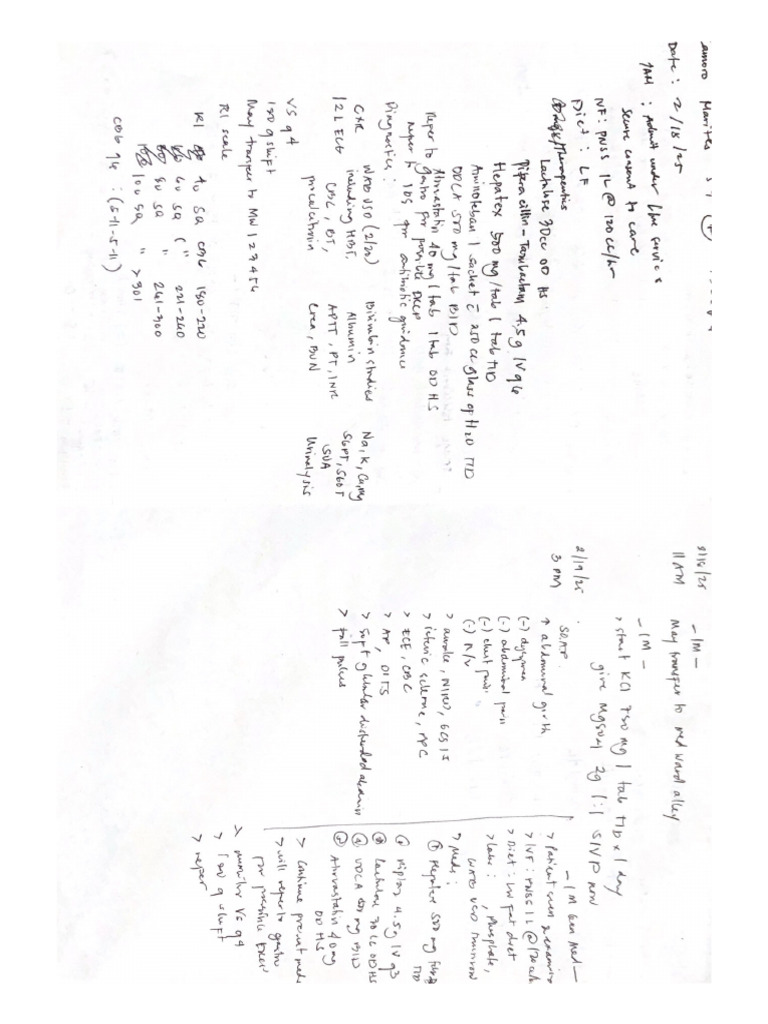 Marites
Date : 2/18/25
1AM : Admit under
Secure consent to care
IVF : PNSS 1L @ 120 cc/hr
Diet : LF
Drugs/Therapeutics
Lactulose 30cc OD HS
Piperacillin-Tazobactam 4.5g IV q6
Hepatex 500 mg/tab 1 tab TID
Aminoleban 1 sachet c̄ 250 cc glass of H2O TID
UDCA 500 mg/tab BID
Atorvastatin 40 mg/tab 1 tab OD HS
Refer to gastro for possible ERCP
Refer to IDS for antibiotic guidance
Diagnostics :
CXR WAB USD (2/20) Bilirubin studies Na, K, Ca, Mg
12L ECG including HBT, Albumin SGPT, SGOT
CBC, BT, APTT, PT, INR SUA
procalcitonin Crea, BUN Urinalysis
VS q4
I&O q shift
May transfer to MW 123456
RI scale
RI 4u SQ CBG 180-220
6u SQ ( " 221-260
8u SQ " 261-300
10u SQ " > 301
CBG q6 : (6-11-5-11)
2/18/25 - IM -
11AM May transfer to med ward alley
- IM -
> start KCl 750 mg / tab TID x 1 day
give MgSO4 2g 1:1 SIVP now
2/19/25
3 PM
SOAP
↑ abdominal girth
(-) dyspnea
(-) abdominal pain
(-) chest pain
(-) N/V
> awake, NIRD, GCS 15
> icteric sclerae, APC
> ECE, CBS
> AP, DITS
> soft globular distended abdomen
> full pulses
- IM Gen Med -
> Patient seen & examined
> IVF : PNSS 1L @ 120cc/h
> Diet : low fat diet
> Labs : , Phosphate,
WAB USD tomorrow
> Meds :
① Hepatex 500 mg TID
② Piptaz 4.5g IV q8
③ Lactulose 30 cc OD HS
④ UDCA 500 mg BID
⑤ Atorvastatin 40mg
OD HS
> Continue present meds
> will refer to gastro
for possible ERCP
> monitor VS q4
> I&O q shift
> refer